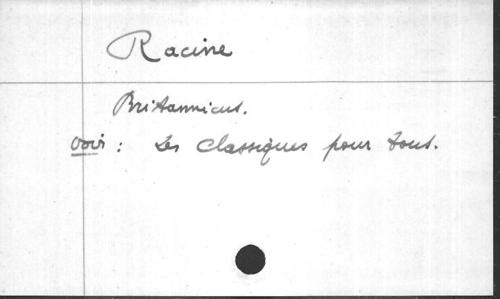 Racine
Britannicus.
voir : Les Classiques pour tous.